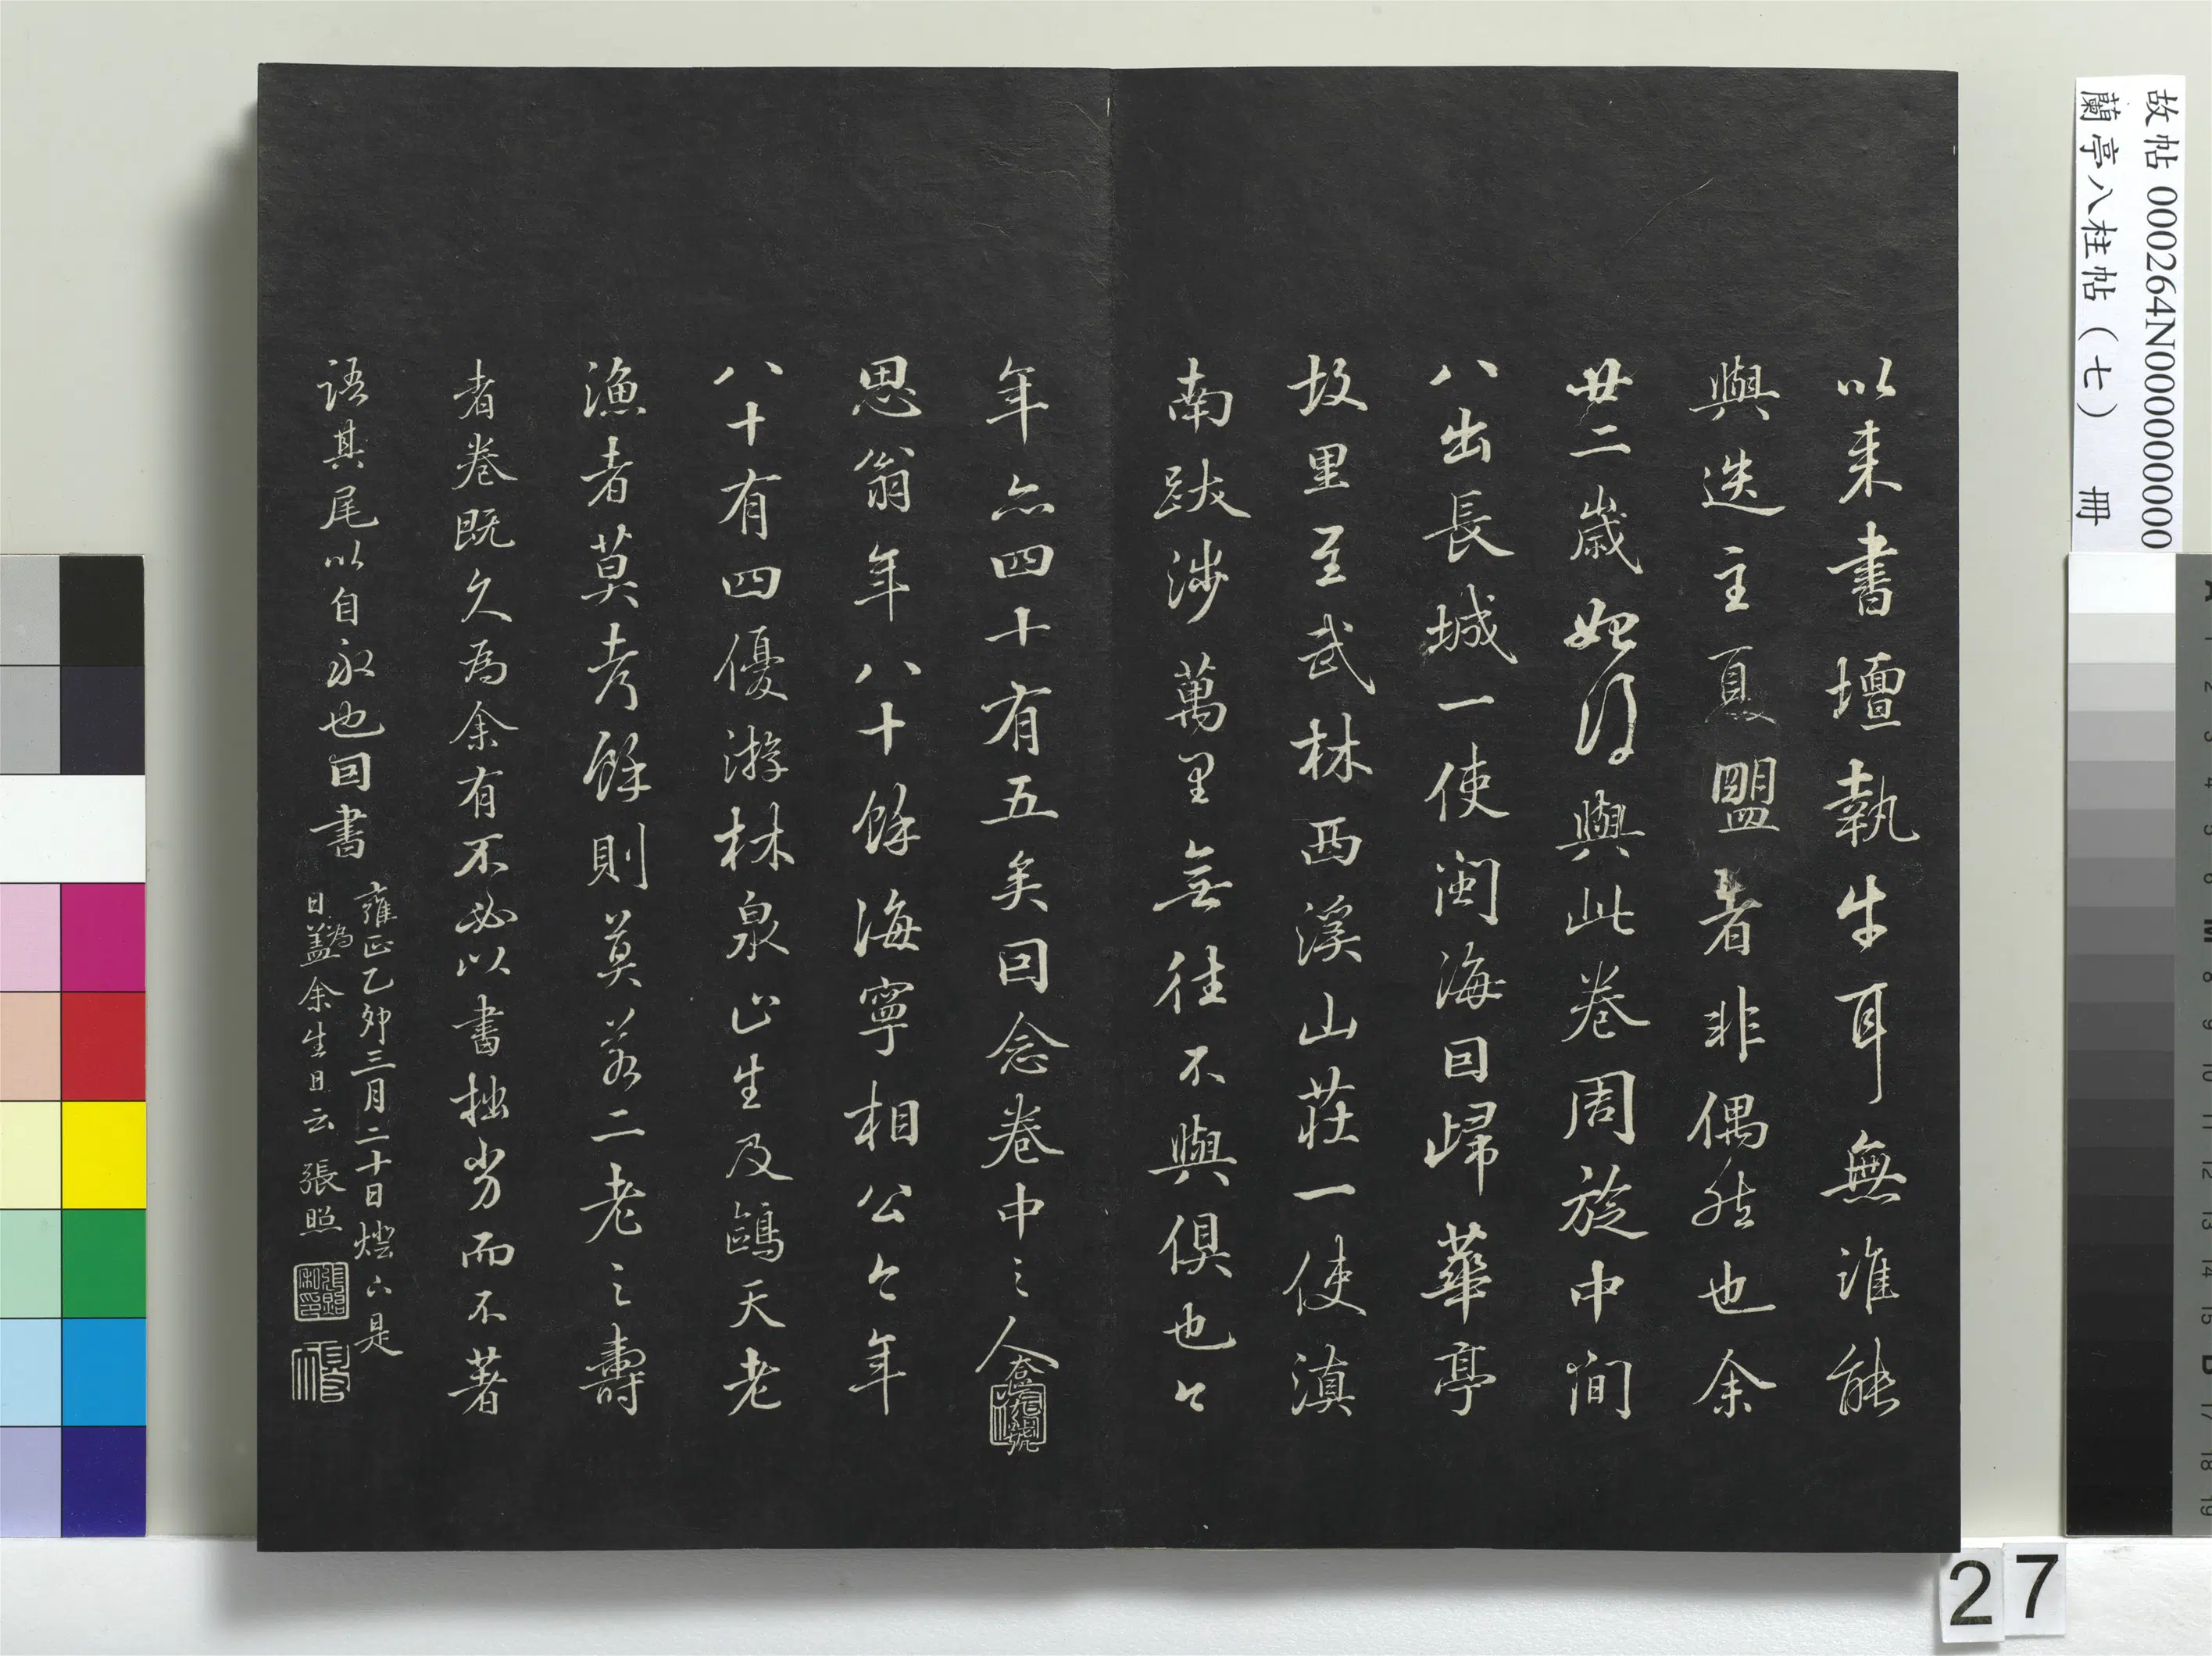 以来書壇執牛耳無誰能
與迭主夏盟者非偶然也余
廿二歲始得與此卷周旋中間
八出長城一使閩海回歸華亭
故里至武林西溪山莊一使滇
南跋涉萬里無往不與俱也今
年亦四十有五矣回念卷中之人
思翁年八十餘海寧相公今年
八十有四優游林泉山生及鷗天老
漁者莫考餘則莫若二老之壽
者卷既久為余有不必以書拙劣而不著
語其尾以自永也回書
雍正乙卯三月二十日燈下是
日為蓋余生日云 張照
故帖 000264N000000000
蘭亭八柱帖（七） 冊
27